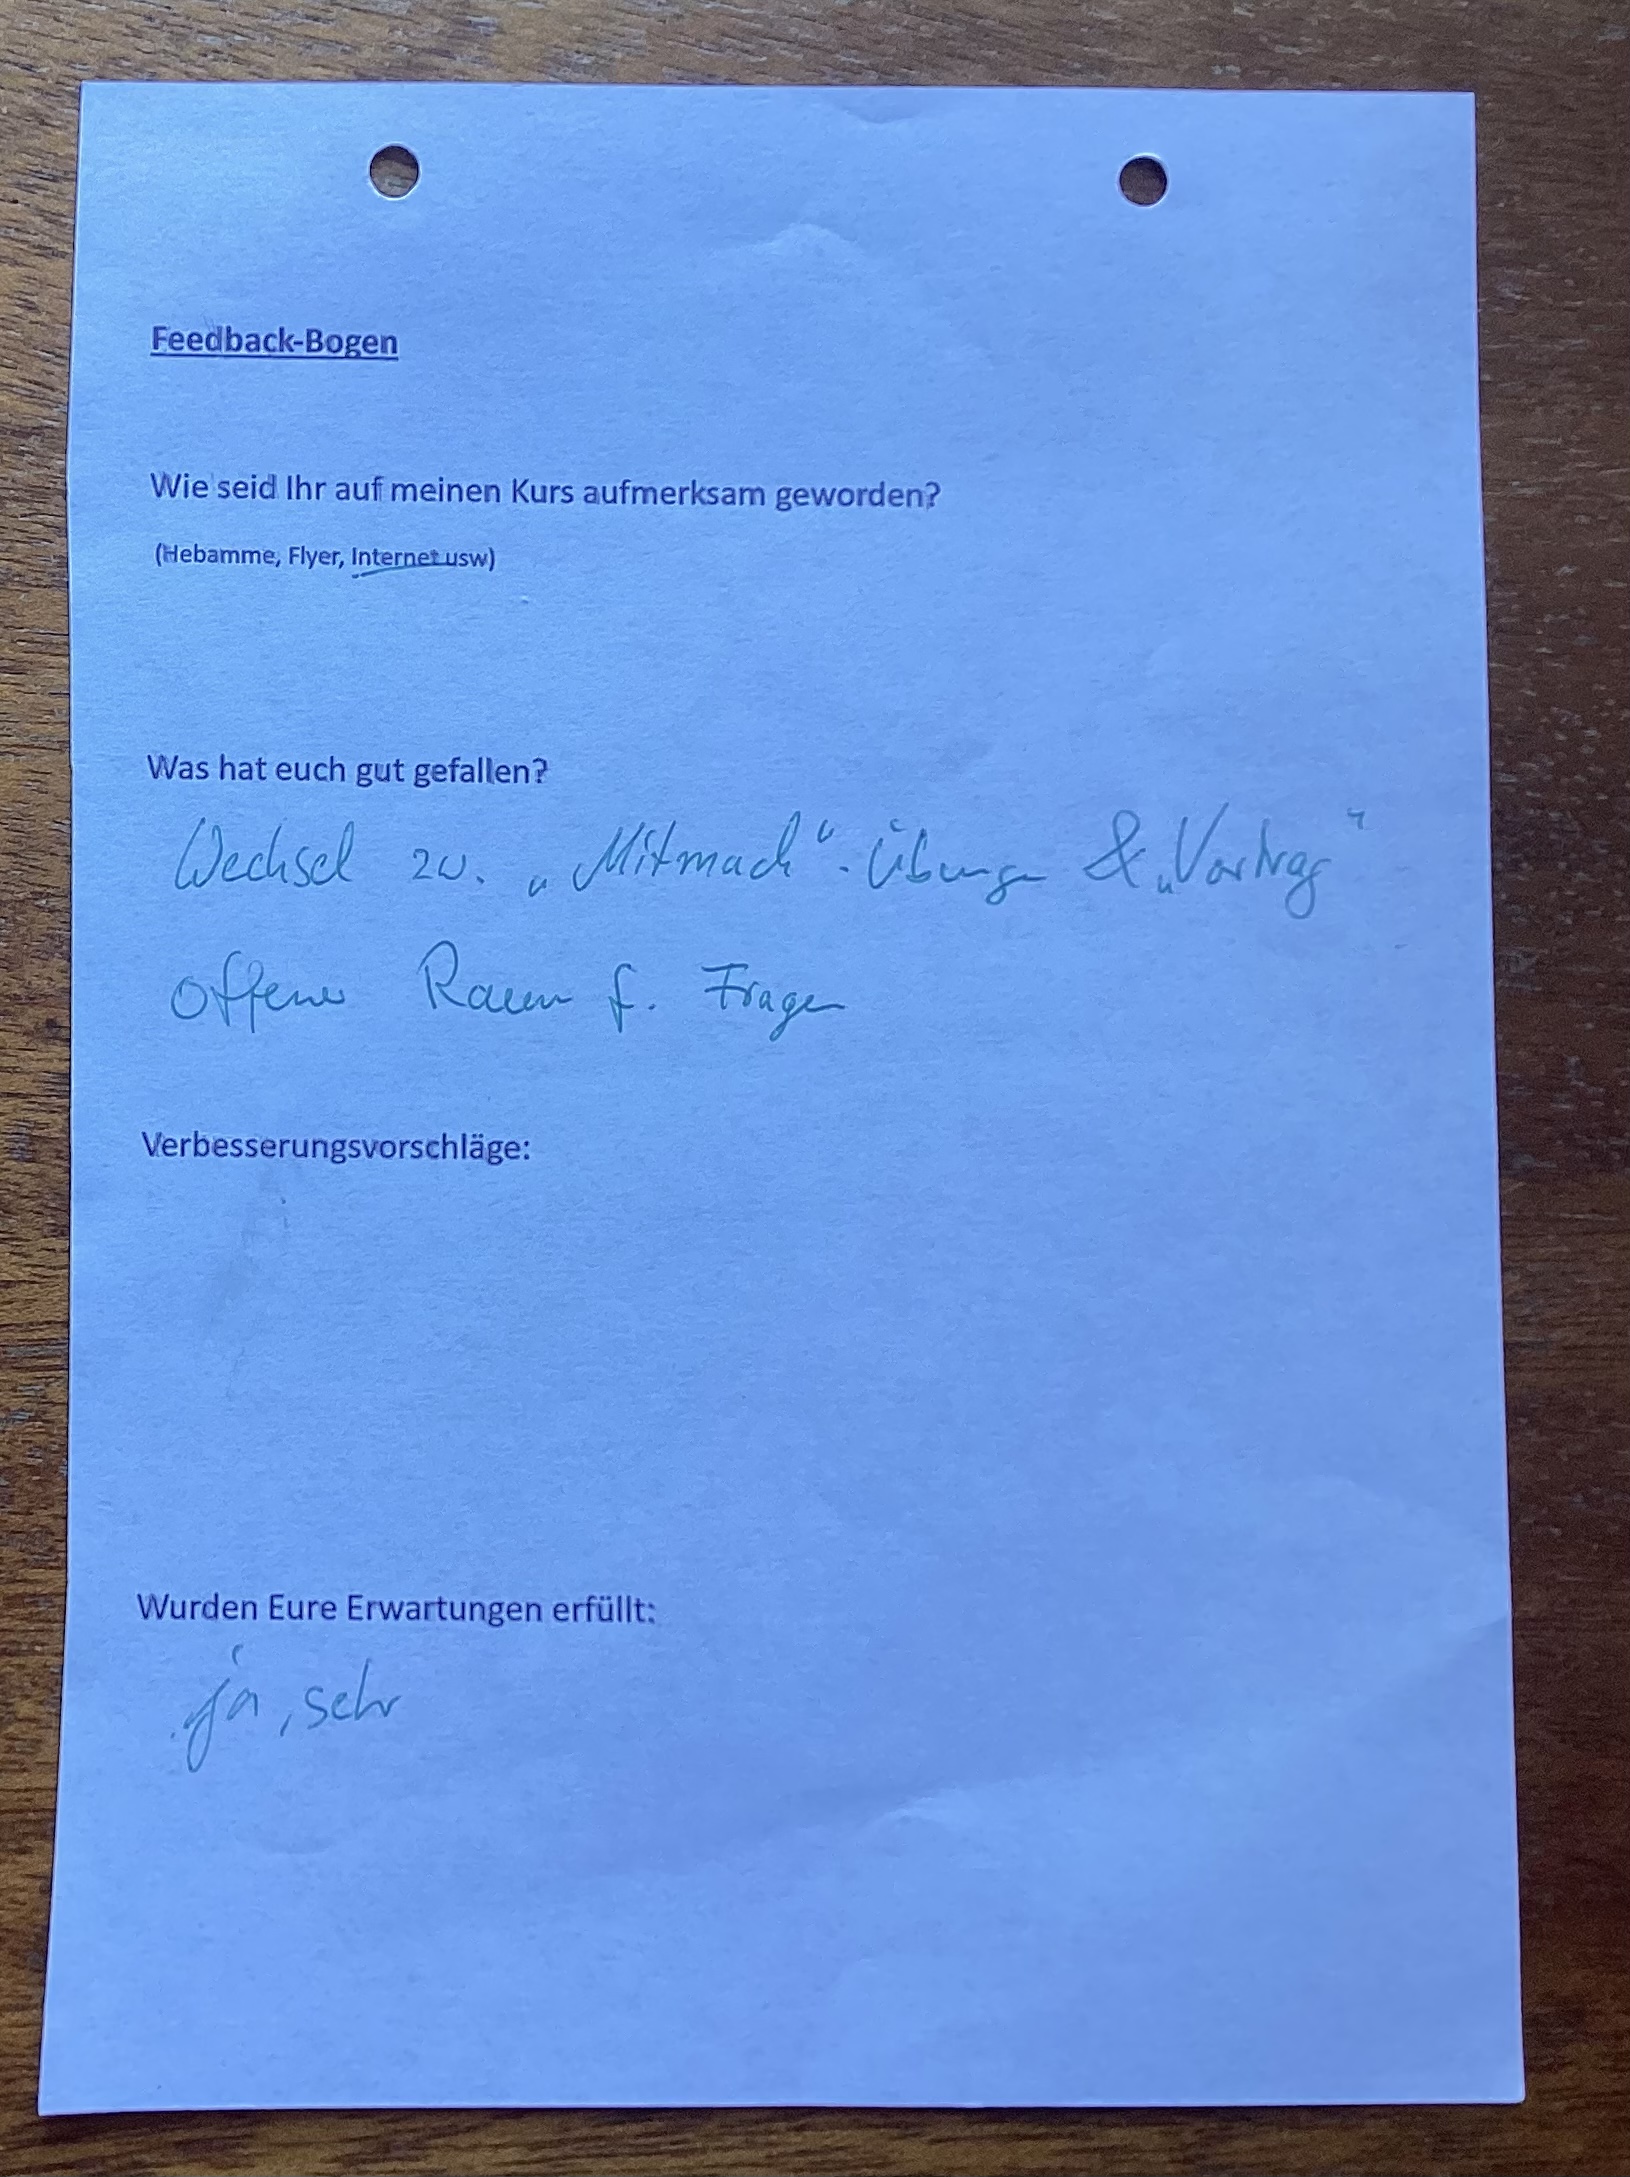 Feedback-Bogen
Wie seid Ihr auf meinen Kurs aufmerksam geworden?
(Hebamme, Flyer, Internet usw)
Was hat euch gut gefallen?
Wechsel zw. „Mitmach“-Übungen & „Vortrag“
Offener Raum f. Fragen
Verbesserungsvorschläge:
Wurden Eure Erwartungen erfüllt:
ja, sehr